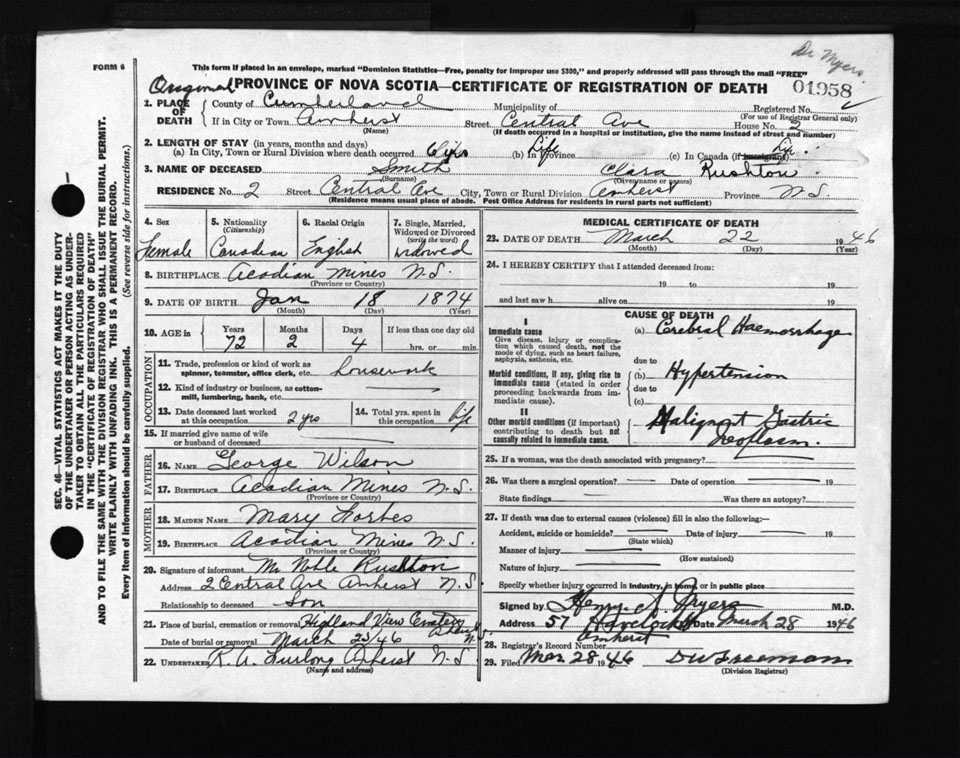 Dr Myers
FORM 6
This form if placed in an envelope, marked "Dominion Statistics—Free, penalty for improper use $300," and properly addressed will pass through the mail "FREE"
Original PROVINCE OF NOVA SCOTIA—CERTIFICATE OF REGISTRATION OF DEATH 01958
1. PLACE OF DEATH
County of Cumberland Municipality of Registered No.
(For use of Registrar General only)
If in City or Town Amherst Street Central Ave House No. 2
(Name) (If death occurred in a hospital or institution, give the name instead of street and number)
2. LENGTH OF STAY (in years, months and days)
(a) In City, Town or Rural Division where death occurred (b) In Province Life (c) In Canada (if immigrant) Life
3. NAME OF DECEASED Smith Clara Rushton
(Surname) (Given name or names)
RESIDENCE No. 2 Street Central Ave City, Town or Rural Division Amherst Province N.S.
(Residence means usual place of abode. Post Office Address for residents in rural parts not sufficient)
4. Sex Female
5. Nationality (Citizenship) Canadian
6. Racial Origin English
7. Single, Married, Widowed or Divorced (write the word) widowed
8. BIRTHPLACE Acadian Mines N.S.
(Province or Country)
9. DATE OF BIRTH Jan 18 1874
(Month) (Day) (Year)
10. AGE in Years Months Days If less than one day old
72 2 4 hrs. or min.
OCCUPATION
11. Trade, profession or kind of work as spinner, teamster, office clerk, etc. housework
12. Kind of industry or business, as cotton-mill, lumbering, bank, etc.
13. Date deceased last worked at this occupation 2 yrs
14. Total yrs. spent in this occupation life
15. If married give name of wife or husband of deceased
FATHER
16. NAME George Wilson
17. BIRTHPLACE Acadian Mines N.S.
(Province or Country)
MOTHER
18. MAIDEN NAME Mary Forbes
19. BIRTHPLACE Acadian Mines N.S.
(Province or Country)
20. Signature of informant Mr Noble Rushton
Address 2 Central Ave Amherst N.S.
Relationship to deceased Son
21. Place of burial, cremation or removal Highland View Cemetery Amherst N.S.
Date of burial or removal March 25/46
22. UNDERTAKER R. A. Furlong Amherst N.S.
(Name and address)
MEDICAL CERTIFICATE OF DEATH
23. DATE OF DEATH March 22 1946
(Month) (Day) (Year)
24. I HEREBY CERTIFY that I attended deceased from:
19 to 19
and last saw h alive on 19
CAUSE OF DEATH
I
Immediate cause
Give disease, injury or complication which caused death, not the mode of dying, such as heart failure, asphyxia, asthenia, etc.
(a) Cerebral Haemorrhage
due to
Morbid conditions, if any, giving rise to immediate cause (stated in order proceeding backwards from immediate cause).
(b) Hypertension
due to
(c)
II
Other morbid conditions (if important) contributing to death but not causally related to immediate cause.
Malignant Gastric
neoplasm
25. If a woman, was the death associated with pregnancy?
26. Was there a surgical operation? Date of operation 19
State findings Was there an autopsy?
27. If death was due to external causes (violence) fill in also the following:—
Accident, suicide or homicide? Date of injury 19
(State which)
Manner of injury
(How sustained)
Nature of injury
Specify whether injury occurred in industry, in home, or in public place
Signed by Henry A. Myers M.D.
Address 57 Havelock St Date March 28 1946
Amherst
28. Registrar's Record Number
29. Filed Mar 28 1946 D W Freeman
(Division Registrar)
SEC. 46—VITAL STATISTICS ACT MAKES IT THE DUTY
OF THE UNDERTAKER OR PERSON ACTING AS UNDER-
TAKER TO OBTAIN ALL THE PARTICULARS REQUIRED
IN THE "CERTIFICATE OF REGISTRATION OF DEATH"
AND TO FILE THE SAME WITH THE DIVISION REGISTRAR WHO SHALL ISSUE THE BURIAL PERMIT.
WRITE PLAINLY WITH UNFADING INK. THIS IS A PERMANENT RECORD.
Every item of information should be carefully supplied. (See reverse side for instructions.)